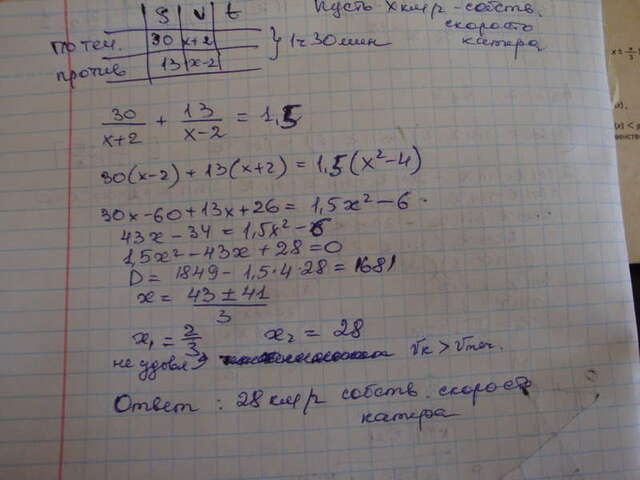 Пусть х км/г - собств.
скорость
катера
S V t
по теч. 30 x+2
против 13 x-2
} 1ч 30 мин
30/(x+2) + 13/(x-2) = 1,5
30(x-2) + 13(x+2) = 1,5(x²-4)
30x-60+13x+26 = 1,5x²-6
43x-34 = 1,5x²-6
1,5x²-43x+28=0
D = 1849-1,5·4·28 = 1681
x = (43±41)/3
x₁ = 2/3 x₂ = 28
не удовл Vк > Vтеч.
Ответ: 28 км/г собств. скорость
катера